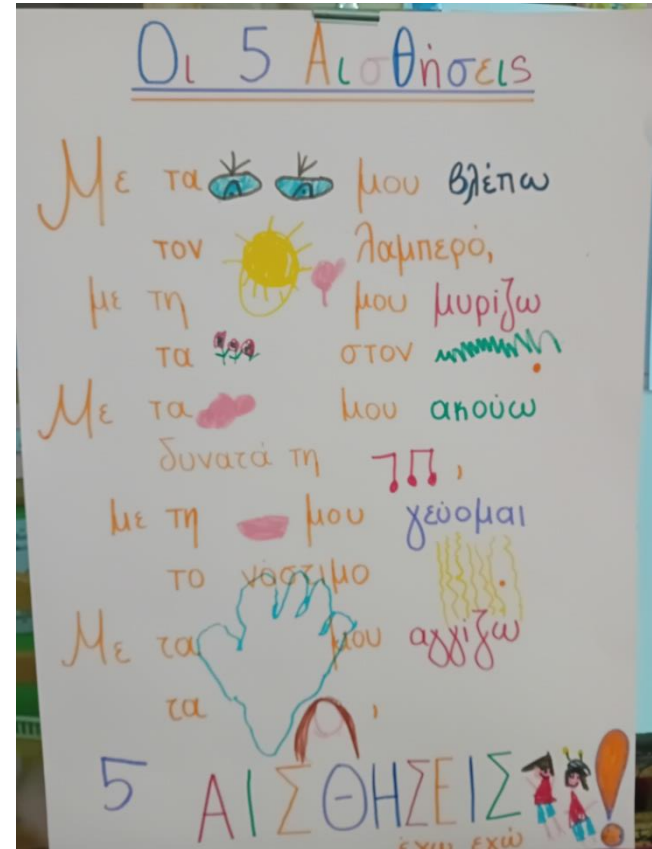 Οι 5 Αισθήσεις
Με τα μου βλέπω
τον λαμπερό,
με τη μου μυρίζω
τα στον .
Με τα μου ακούω
δυνατά τη ,
με τη μου γεύομαι
το νόστιμο .
Με τα μου αγγίζω
τα ,
5 ΑΙΣΘΗΣΕΙΣ!
έχω εχώ